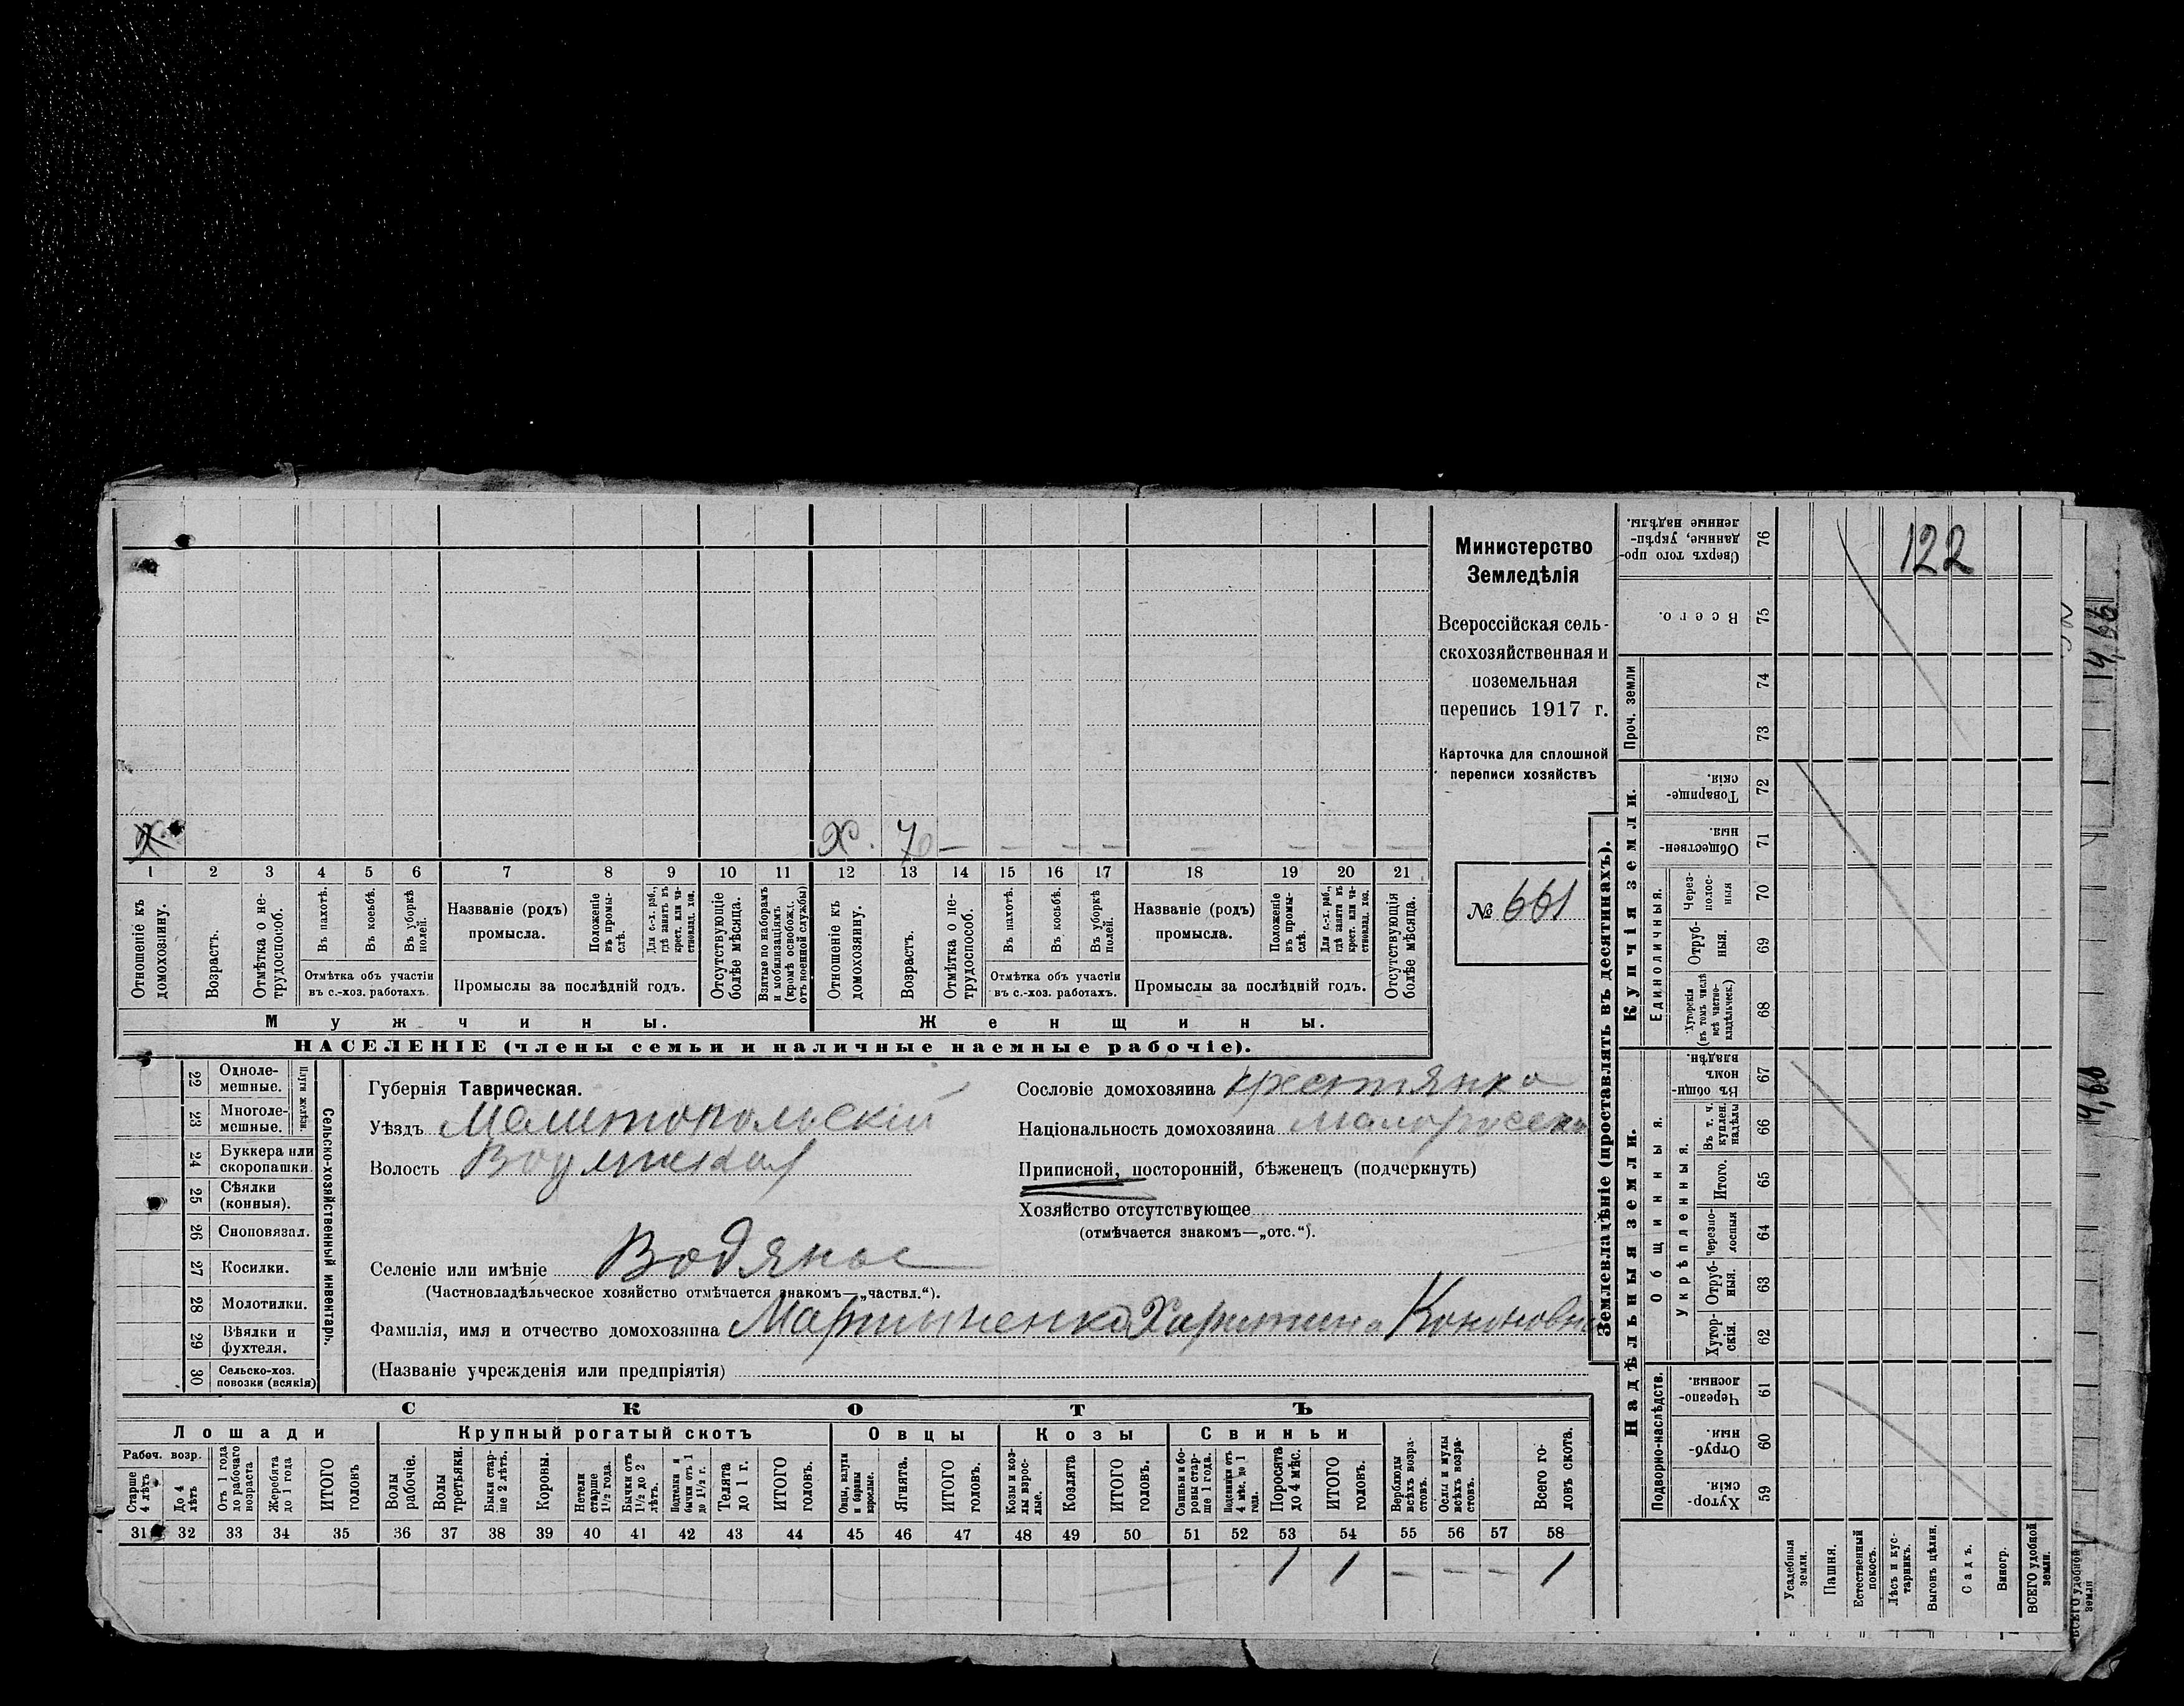 Министерство
Земледѣлія
Всероссійская сель-
скохозяйственная и
поземельная
перепись 1917 г.
Карточка для сплошной
переписи хозяйствъ
№ 661
122
Х. Х. 70
1 2 3 4 5 6 7 8 9 10 11 12 13 14 15 16 17 18 19 20 21
Отношеніе къ домохозяину.
Возрастъ.
Отмѣтка о не-трудоспособ.
Въ пахотѣ.
Въ косьбѣ.
Въ уборкѣ полей.
Отмѣтка объ участіи въ с.-хоз. работахъ.
Названіе (родъ) промысла.
Положеніе въ промы-слѣ.
Для с.-х. раб., гдѣ занятъ въ крест. или ча-стновлад. хоз.
Промыслы за послѣдній годъ.
Отсутствующіе болѣе мѣсяца.
Взятые по наборамъ и мобилизаціямъ (кромѣ освобожд. отъ военной службы)
Отношеніе къ домохозяину.
Возрастъ.
Отмѣтка о не-трудоспособ.
Въ пахотѣ.
Въ косьбѣ.
Въ уборкѣ полей.
Отмѣтка объ участіи въ с.-хоз. работахъ.
Названіе (родъ) промысла.
Положеніе въ промы-слѣ.
Для с.-х. раб., гдѣ занята въ крест. или ча-стновлад. хоз.
Промыслы за послѣдній годъ.
Отсутствующія болѣе мѣсяца.
Мужчины. Женщины.
НАСЕЛЕНІЕ (члены семьи и наличные наемные рабочіе).
Сельско-хозяйственный инвентарь.
Плуги желѣзн.
22 Одноле-мешные.
23 Многоле-мешные.
24 Буккера или скоропашки.
25 Сѣялки (конныя).
26 Сноповязал.
27 Косилки.
28 Молотилки.
29 Вѣялки и фухтеля.
30 Сельско-хоз. повозки (всякія)
Губернія Таврическая.
Уѣздъ Мелитопольскій
Волость Водянская
Селеніе или имѣніе Водяное
(Частновладѣльческое хозяйство отмѣчается знакомъ—„частвл.“).
Фамилія, имя и отчество домохозяина Мартыненко Харитина Кононовна
(Названіе учрежденія или предпріятія)
Сословіе домохозяина крестянка
Національность домохозяина малоросска
Приписной, посторонній, бѣженецъ (подчеркнуть)
Хозяйство отсутствующее
(отмѣчается знакомъ—„отс.“).
СКОТЪ
Лошади Крупный рогатый скотъ Овцы Козы Свиньи
Рабоч. возр.
Старше 4 лѣтъ
До 4 лѣтъ
Отъ 1 года до рабочаго возраста
Жеребята до 1 года
ИТОГО головъ
Волы рабочіе.
Волы третьяки.
Быки стар-ше 2 лѣтъ.
Коровы.
Нетели старше 1½ года.
Бычки отъ 1½ до 2 лѣтъ.
Подтелки и бычки отъ 1 до 1½ г.
Телята до 1 г.
ИТОГО головъ.
Овцы, валухи и бараны взрослые.
Ягнята.
ИТОГО головъ.
Козы и коз-лы взрос-лые.
Козлята
ИТОГО головъ.
Свиньи и бо-ровы стар-ше 1 года.
Подсвинки отъ 4 мѣс. до 1 года.
Поросята до 4 мѣс.
ИТОГО головъ.
Верблюды всѣхъ возра-стовъ.
Ослы и мулы всѣхъ возра-стовъ.
Всего го-ловъ скота.
31 32 33 34 35 36 37 38 39 40 41 42 43 44 45 46 47 48 49 50 51 52 53 54 55 56 57 58
1 1 – – – 1
Землевладѣніе (проставлять въ десятинахъ).
Надѣльныя земли. Купчія земли.
Проч. земли
Подворно-наслѣдств.
Общинныя.
Укрѣпленныя.
Единоличныя.
Хутор-скія. 59
Отруб-ныя. 60
Черезпо-лосныя. 61
Хутор-скія. 62
Отруб-ныя. 63
Черезпо-лосныя 64
Итого. 65
Въ т. ч. куплен. надѣлы 66
Въ общин-номъ владѣн. 67
Хуторскія (въ томъ числѣ всѣ частно-владѣльческ.) 68
Отруб-ныя. 69
Через-полос-ныя 70
Обществен-ныя. 71
Товарище-скія. 72
73
74
Всего. 75
Сверхъ того про-данные, укрѣп-ленные надѣлы. 76
Усадебныя земли.
Пашня.
Естественный покосъ.
Лѣсъ и кус-тарникъ.
Выгонъ цѣлин.
Садъ.
Виногр.
ВСЕГО удобной земли.
ВСЕГО удобной земли
14,66